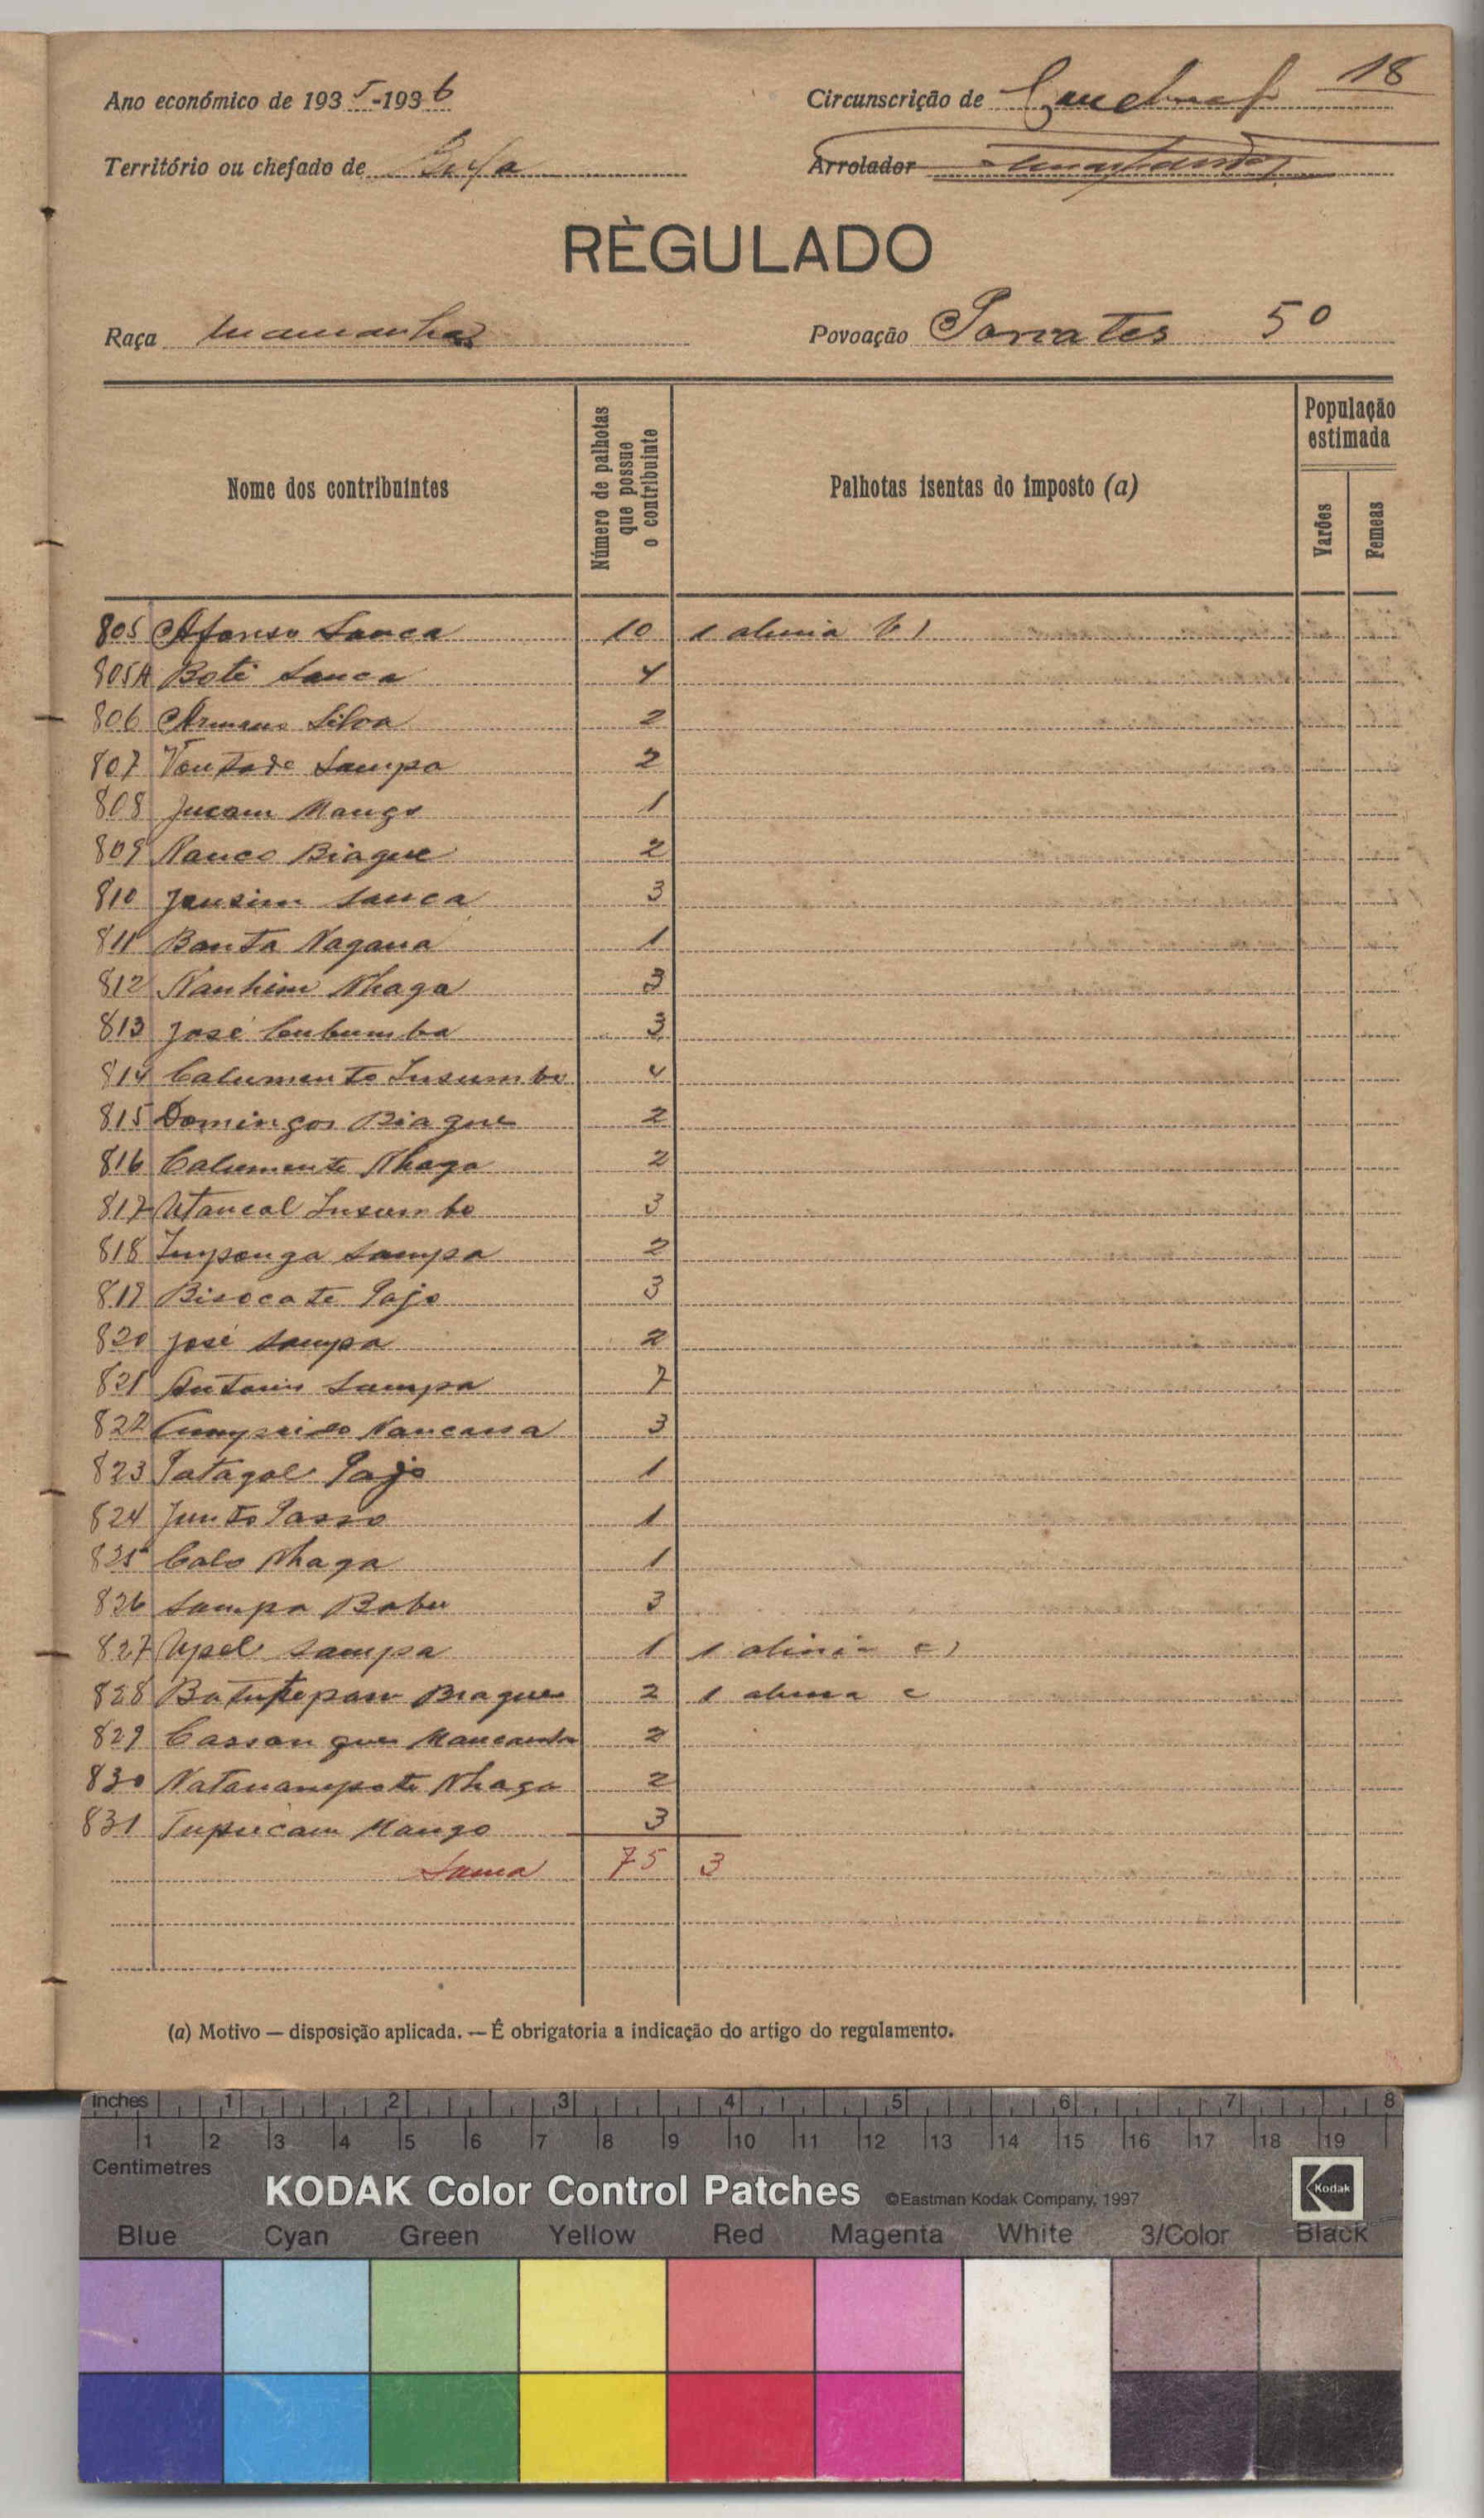 18
Ano económico de 1935-1936 Circunscrição de
Território ou chefado de Arrolador
RÈGULADO
Raça Mamanhas Povoação 5º
Nome dos contribuintes Número de palhotas que possue o contribuinte Palhotas isentas do imposto (a) População estimada Varões Femeas
805 Afonso Sanca 10 1 alinia b)
805A Boti Sanca 4
806 Silva 2
807 Vontade Sampa 2
808 Jucam Mango 1
809 Nanco Biague 2
810 Jensim Sanca 3
811 Banta Nagana 1
812 Nanhim Nhaga 3
813 José Cubumba 3
814 Calumente Insumbo 4
815 Domingos Biague 2
816 Calumente Nhaga 2
817 Utancal Insumbo 3
818 Imponga Sampa 2
819 Bisocate Pajo 3
820 José Sampa 2
821 Antonio Sampa 7
822 Cumprido Nancassa 3
823 Patagal Pajo 1
824 Junto Passo 1
825 Calo Nhaga 1
826 Sampa Babu 3
827 Upel Sampa 1 1 alinia c)
828 Biague 2 1 alinia c
829 Cassangue 2
830 Natananepote Nhaga 2
831 Tupucam Mango 3
Soma 75 3
(a) Motivo — disposição aplicada. — É obrigatoria a indicação do artigo do regulamento.
Inches 1 2 3 4 5 6 7 8
1 2 3 4 5 6 7 8 9 10 11 12 13 14 15 16 17 18 19
Centimetres
KODAK Color Control Patches ©Eastman Kodak Company, 1997 Kodak
Blue Cyan Green Yellow Red Magenta White 3/Color Black